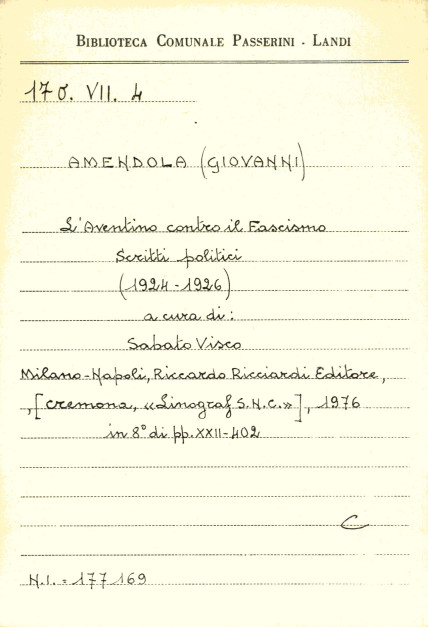 BIBLIOTECA COMUNALE PASSERINI - LANDI
170. VII. 4
AMENDOLA (GIOVANNI)
L'Aventino contro il Fascismo
Scritti politici
(1924-1926)
a cura di:
Sabato Visco
Milano-Napoli, Riccardo Ricciardi Editore,
,[Cremona, «Linograf S.N.C.»], 1976
in 8° di pp. XXII-402
C
N.I. = 177169